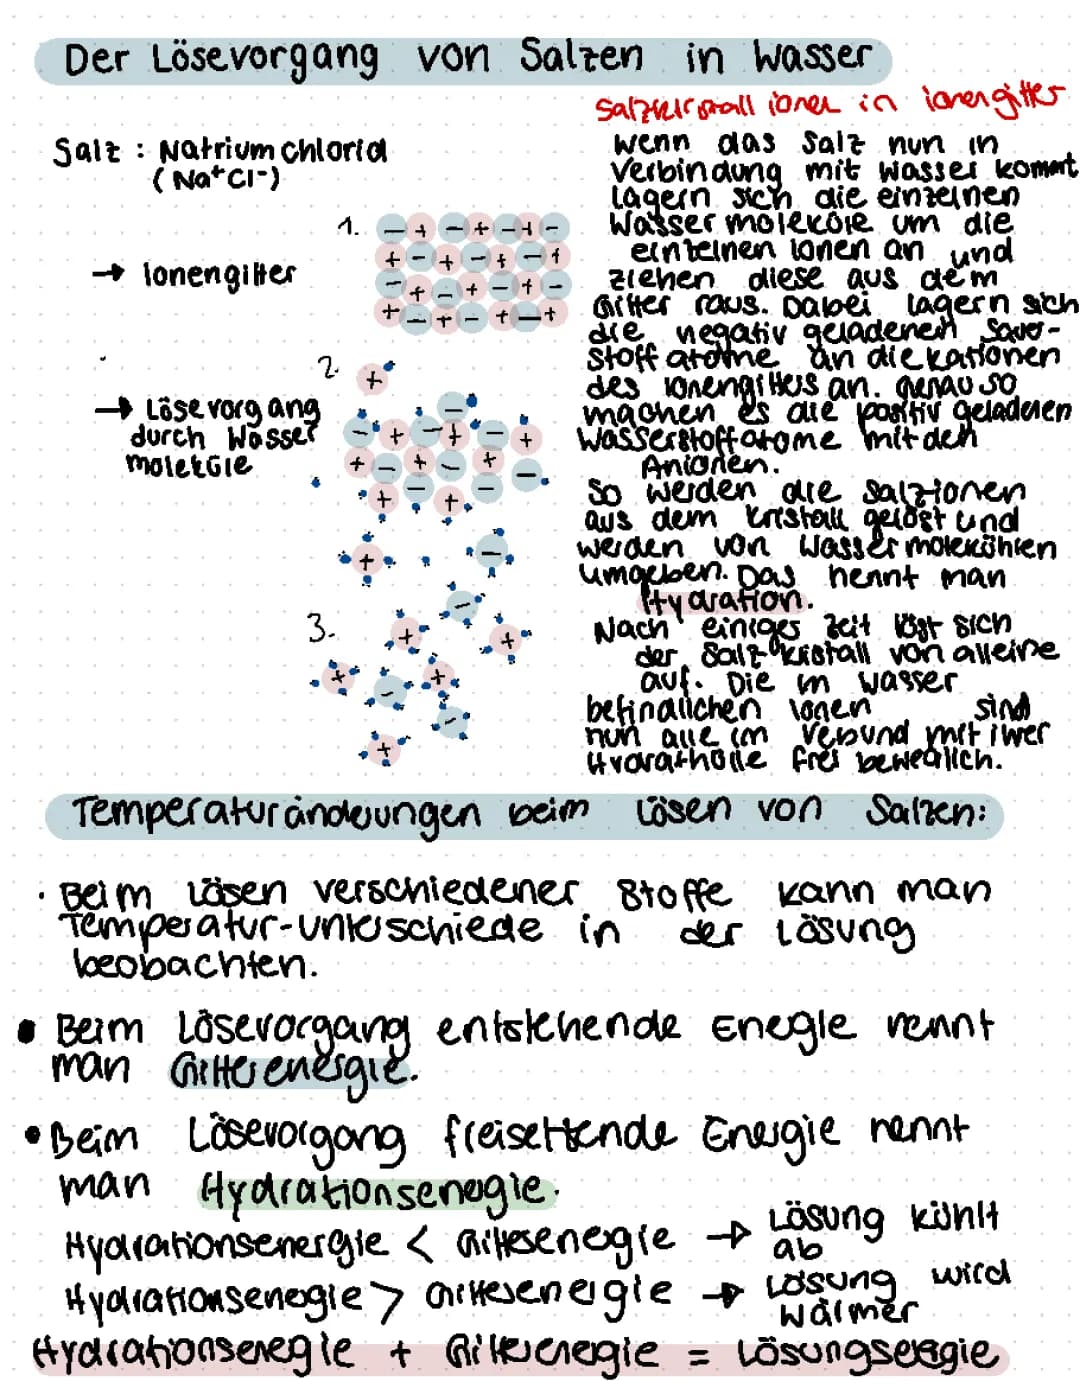 Der Lösevorgang von Salzen in Wasser
Salz : Natriumchlorid
(Na⁺Cl⁻)
1.
→ Ionengitter
2.
→ Lösevorgang
durch Wasser
moleküle
3.
ionen in ionengitter
wenn das Salz nun in
Verbindung mit Wasser kommt
lagern sich die einzelnen
Wassermoleküle um die
einzelnen Ionen an und
ziehen diese aus dem
Gitter raus. Dabei lagern sich
die negativ geladenen Sauer-
stoffatome an die Kationen
des Ionengitters an. genau so
machen es die positiv geladenen
Wasserstoffatome mit den
Anionen.
So werden die Salzionen
aus dem Kristall gelöst und
werden von Wassermolekühlen
umgeben. Das nennt man
Hydration.
Nach einiges Zeit löst sich
der Salzkristall von alleine
auf. Die im Wasser
befindlichen Ionen sind
nun alle im Verbund mit iwer
Hydrathülle frei beweglich.
Temperaturänderungen beim Lösen von Salzen:
· Beim Lösen verschiedener Stoffe kann man
Temperatur-unterschiede in der Lösung
beobachten.
• Beim Lösevorgang entstehende Enegie nennt
man Gitterenergie.
• Beim Lösevorgang freisettende Energie nennt
man Hydrationsenegie.
Hydrationsenergie < Gitterenegie → Lösung kühlt
ab
Hydrationsenegie > Gitterenergie → Lösung wird
wärmer
Hydrationsenegie + Gitterenegie = Lösungsenegie